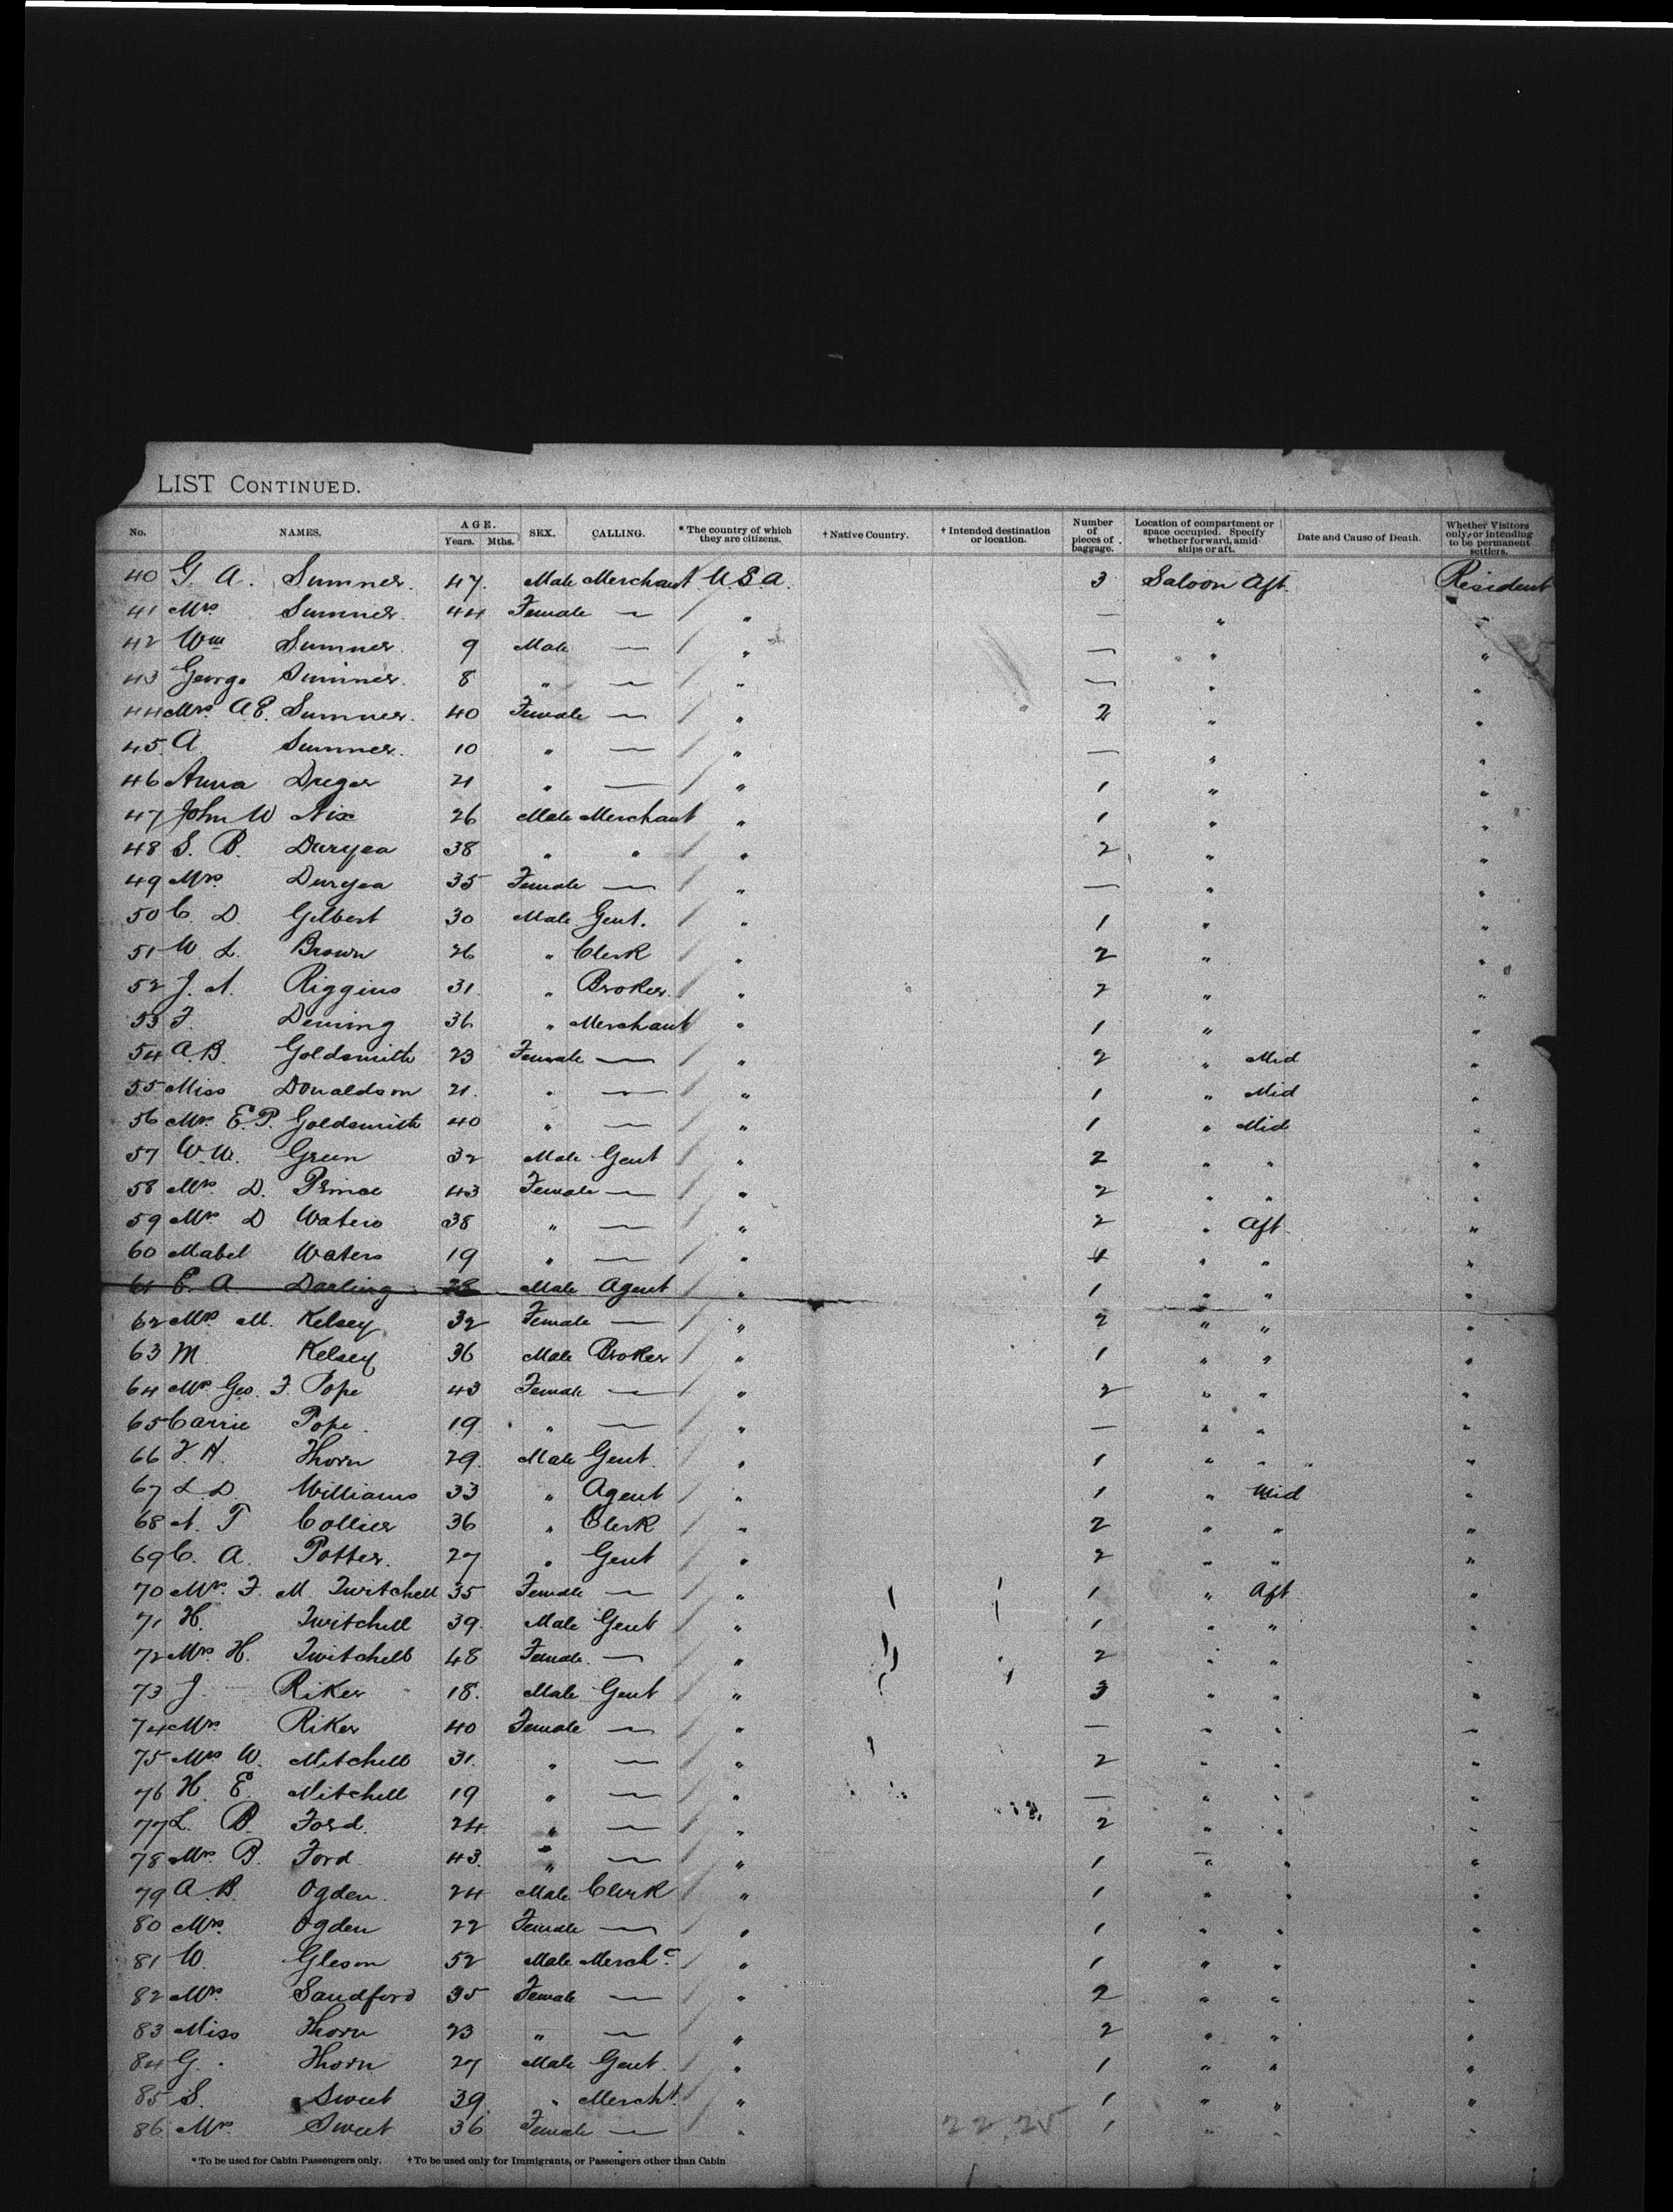 LIST CONTINUED.
No. NAMES. AGE. Years. Mths. SEX. CALLING. * The country of which they are citizens. † Native Country. † Intended destination or location. Number of pieces of baggage. Location of compartment or space occupied. Specify whether forward, amidships or aft. Date and Cause of Death. Whether Visitors only, or intending to be permanent settlers.
40 G. A. Sumner. 47. Male Merchant U.S.A. 3 Saloon Aft. Resident
41 Mrs Sumner. 44 Female — " — " "
42 Wm Sumner. 9 Male — " — " "
43 George Sumner. 8 " — " — " "
44 Mrs. A.E. Sumner. 40 Female — " 2 " "
45 A Sumner. 10 " — " — " "
46 Anna Dreger 21 " — " 1 " "
47 John W Nix 26 Male Merchant " 1 " "
48 S. B. Duryea 38 " " " 2 " "
49 Mrs. Duryea 35 Female — " — " "
50 C. D. Gilbert 30 Male Gent. " 1 " "
51 W. L. Brown 26 " Clerk " 2 " "
52 J. A. Riggins 31. " Broker. " 2 " "
53 F. Deming 36 " Merchant " 1 " "
54 A.B. Goldsmith 23 Female — " 2 " Mid "
55 Miss Donaldson 21. " — " 1 " Mid "
56 Mrs. E.P. Goldsmith 40 " — " 1 " Mid "
57 W.W. Green 32 Male Gent " 2 " " "
58 Mrs. D. Prince 43 Female — " 2 " " "
59 Mrs D Waters 38 " — " 2 " Aft "
60 Mabel Waters 19 " — " 4 " " "
61 E. A. Darling 28 Male Agent " 1 " " "
62 Mrs M. Kelsey 32 Female — " 2 " " "
63 M Kelsey 36 Male Broker " 1 " " "
64 Mrs Geo. F. Pope 43 Female — " 2 " " "
65 Carrie Pope 19. " — " — " " "
66 F. H. Thorn 29. Male Gent. " 1 " " "
67 L.D Williams 33 " Agent " 1 " Mid "
68 A. T Collier 36 " Clerk " 2 " " "
69 C. A. Potter. 27 " Gent " 2 " " "
70 Mrs. F. M Twitchell 35 Female — " 1 " Aft "
71 H. Twitchell 39. Male Gent " 1 " " "
72 Mrs H. Twitchell 48 Female. — " 2 " " "
73 J. Riker 18. Male Gent " 3 " " "
74 Mrs. Riker 40 Female — " — " " "
75 Mrs W. Mitchell 31. " — " 2 " " "
76 H. E. Mitchell 19 " — " — " " "
77 L. B. Ford. 24 " — " 2 " " "
78 Mrs B. Ford. 43. " — " 1 " " "
79 A.B. Ogden. 24 Male Clerk " 1 " " "
80 Mrs. Ogden 22 Female — " 1 " " "
81 W. Gleson 52 Male Merch. " 1 " " "
82 Mrs Sandford 35 Female — " 2 " " "
83 Miss Thorn 23 " — " 2 " " "
84 G. Thorn 27 Male Gent. " 1 " " "
85 S. Sweet 39. " Mercht. " 1 " " "
86 Mrs. Sweet 36 Female — " 22.25 1 " " "
* To be used for Cabin Passengers only. † To be used only for Immigrants, or Passengers other than Cabin